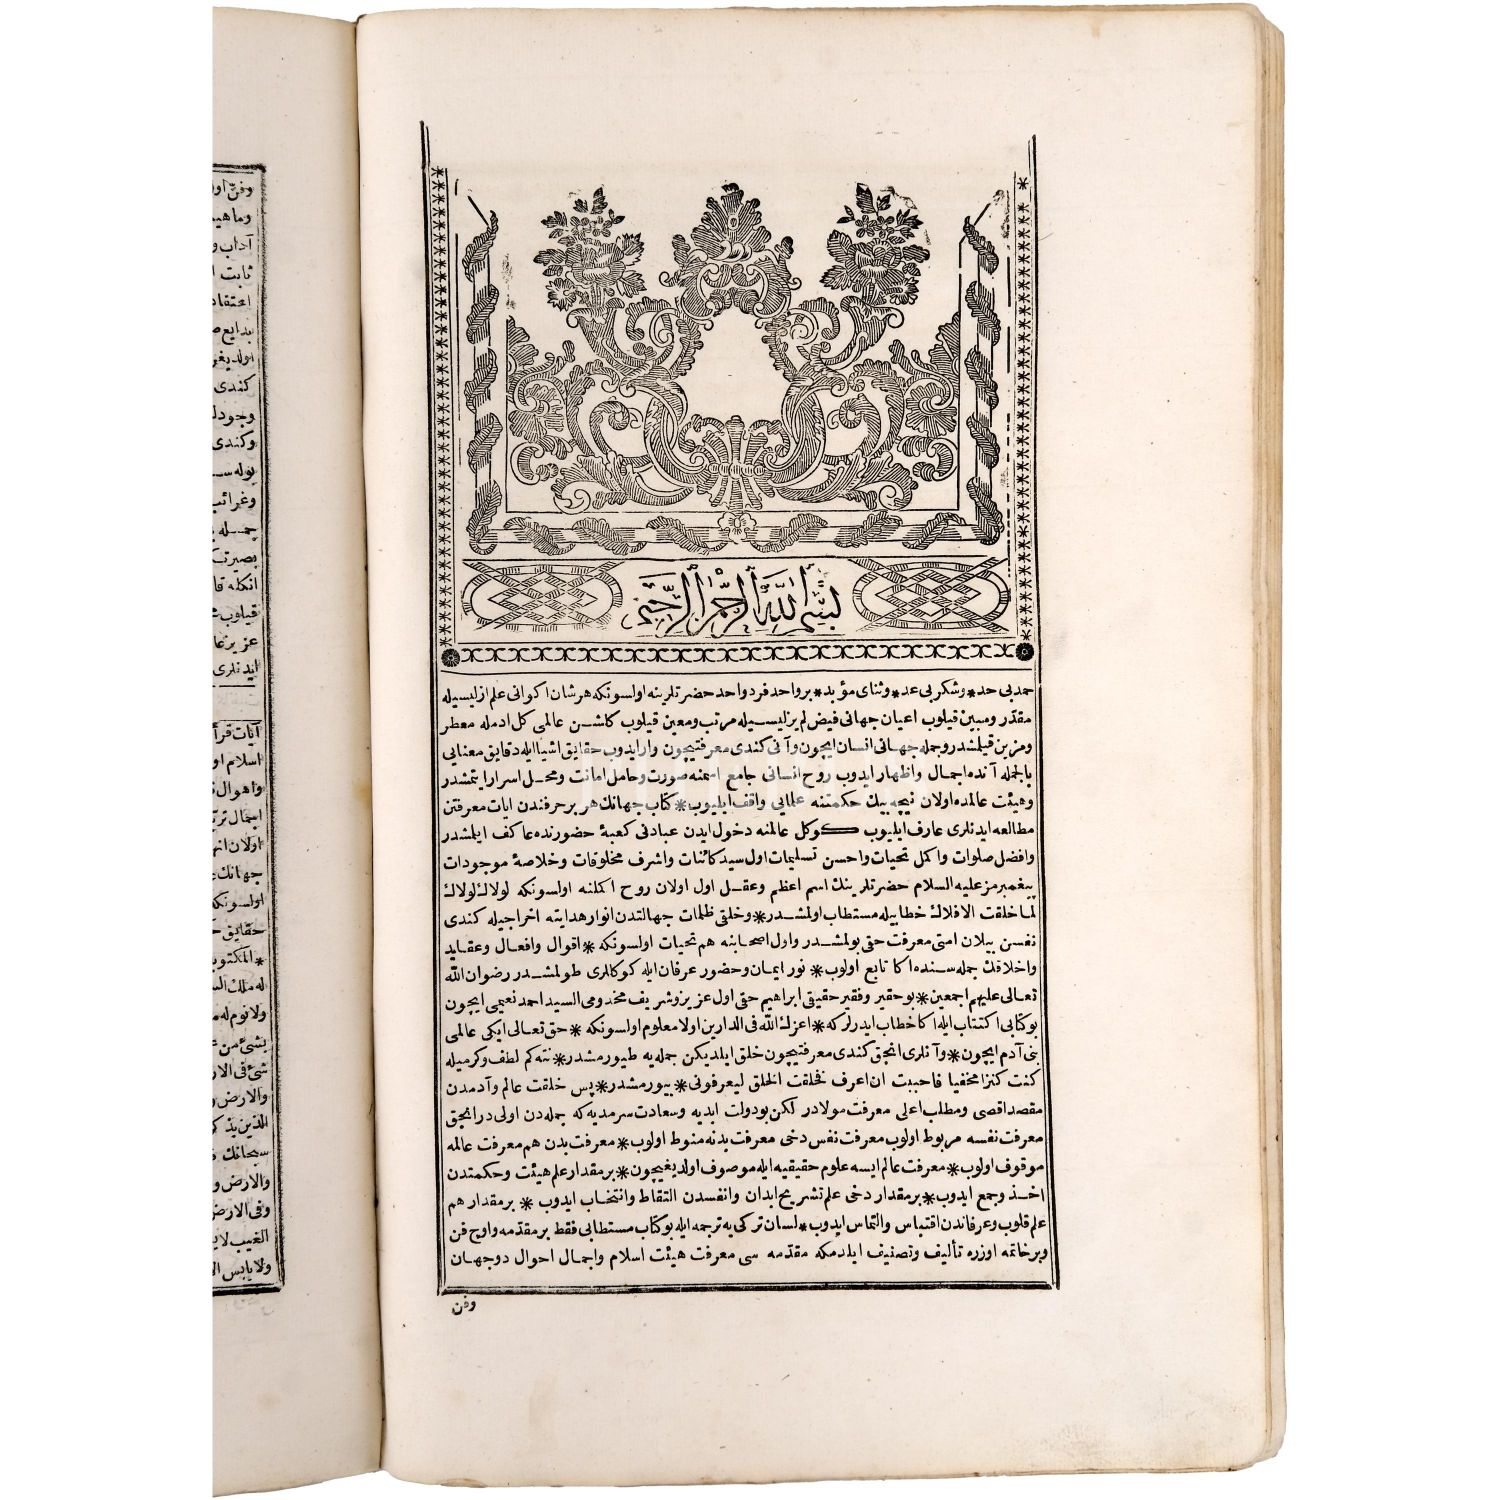 بسم الله الرحمن الرحيم
حمد بی حد * وشکر بی عد * وثنای مؤبد * بر واحد فرد واحد حضرتلرینه اولسونکه هر شان اکوانی علم ازلیسیله
مقدر ومبین قیلوب اعیان جهانی فیض لم یزلیسیله مرتب ومعین قیلوب کلشن عالمی کل ادمله معطر
ومزین قیلمشدر وجمله جهانی انسان ایچون وآنی کندی معرفتیچون وار ایدوب حقایق اشیا ایله دقایق معنایی
بالجمله آنده اجمال واظهار ایدوب روح انسانی جامع اسمنه صورت وحامل امانت ومحل اسرار ایتمشدر
وهیئت عالمده اولان نیچه بیك حکمتنه علمایی واقف ایلیوب * کتاب جهانك هر بر حرفندن ایات معرفتن
مطالعه ایدنلری عارف ایلیوب کوکل عالمنه دخول ایدن عبادنی کعبۀ حضورنده عاکف ایلمشدر
وافضل صلوات واکمل تحیات واحسن تسلیمات اول سید کائنات واشرف مخلوقات وخلاصۀ موجودات
پیغمبرمز علیه السلام حضرتلرینك اسم اعظم وعقل اول اولان روح اکملنه اولسونکه لولاك لولاك
لما خلقت الافلاك خطابیله مستطاب اولمشدر * وخلقی ظلمات جهالتدن انوار هدایته اخراجیله کندی
نفسن بیلان امتی معرفت حقی بولمشدر واول اصحابنه هم تحیات اولسونکه * اقوال وافعال وعقاید
واخلاقك جمله سنده اکا تابع اولوب * نور ایمان وحضور عرفان ایله کوکللری طولمشدر رضوان الله
تعالی علیهم اجمعین * بو حقیر وفقیر حقیقی ابراهیم حقی اول عزیز وشریف مخدومی السید احمد نعیمی ایچون
بو کتابی اکتتاب ایله اکا خطاب ایدر لر که * اعزك الله فی الدارین اولا معلوم اولسونکه * حق تعالی ایکی عالمی
بنی آدم ایچون * وآنلری انجق کندی معرفتیچون خلق ایلدیکن جمله یه طیورمشدر * نته کم لطف وکرمیله
کنت کنزا مخفیا فاحببت ان اعرف فخلقت الخلق لیعرفونی * بیورمشدر * پس خلقت عالم وآدمدن
مقصد اقصی ومطلب اعلی معرفت مولادر لکن بو دولت ابدیه وسعادت سرمدیه که جمله دن اولی در انجق
معرفت نفسه مربوط اولوب معرفت نفس دخی معرفت بدنه منوط اولوب * معرفت بدن هم معرفت عالمه
موقوف اولوب * معرفت عالم ایسه علوم حقیقیه ایله موصوف اولدیغیچون * بر مقدار علم هیئت وحکمتدن
اخذ وجمع ایدوب * بر مقدار دخی علم تشریح ابدان وانفسدن التقاط وانتخاب ایدوب * بر مقدار هم
علم قلوب وعرفاندن اقتباس والتماس ایدوب * لسان ترکی یه ترجمه ایله بو کتاب مستطابی فقط بر مقدمه واوچ فن
وبر خاتمه اوزره تألیف وتصنیف ایلدمکه مقدمه سی معرفت هیئت اسلام واجمال احوال دو جهان
وفن